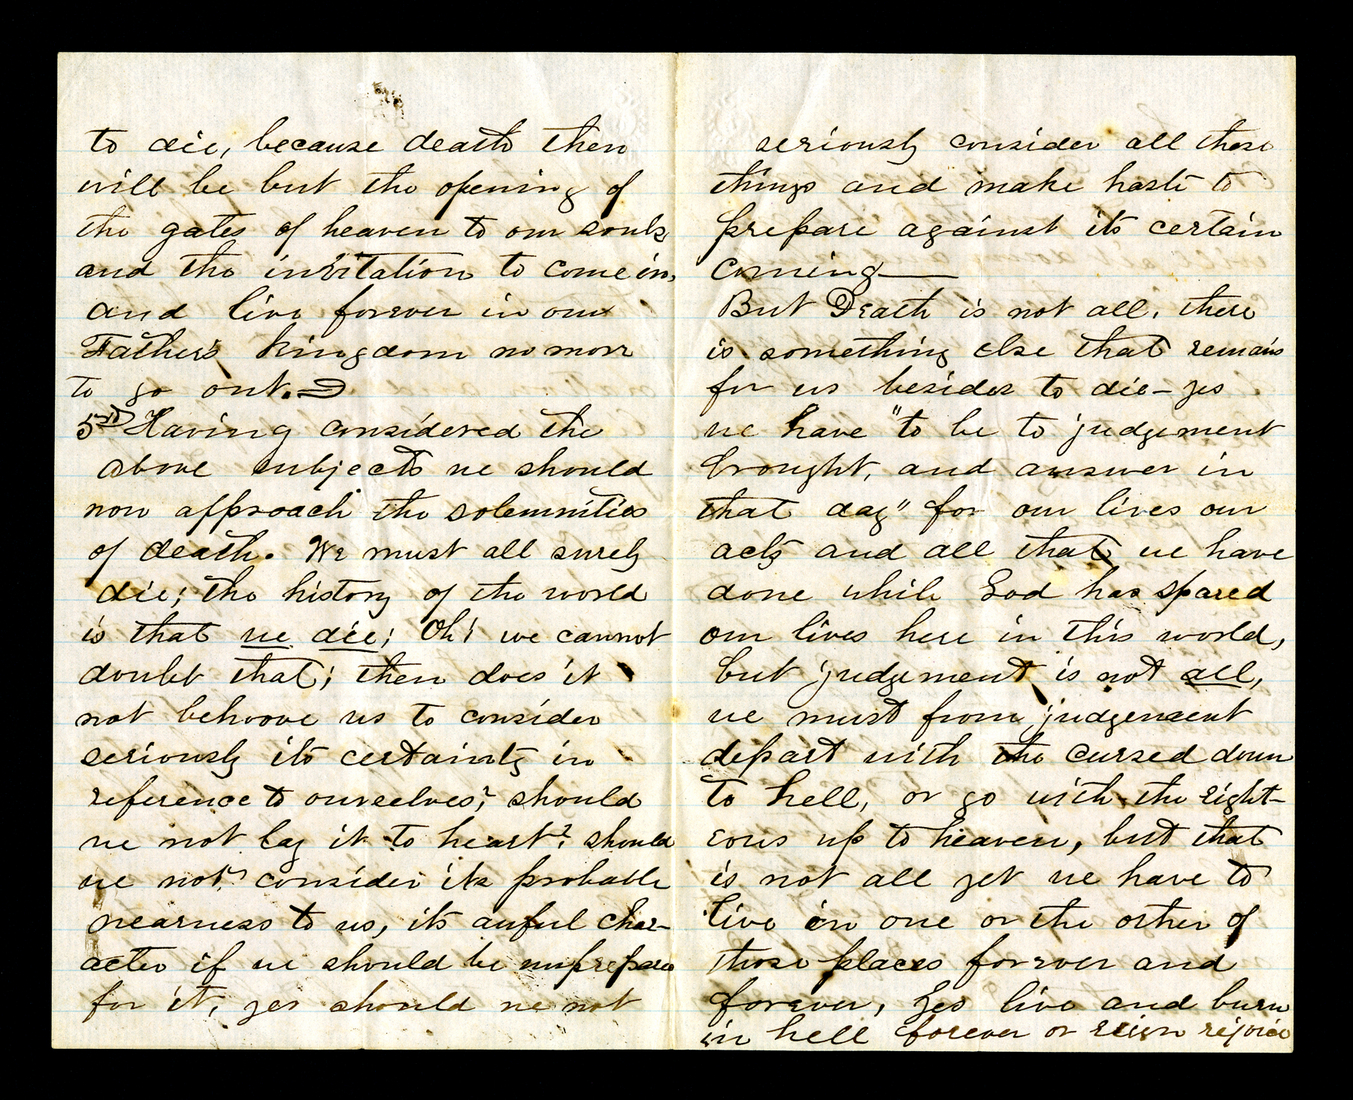 to die, because death then
will be but the opening of
the gates of heaven to our souls
and the invitation to come in,
and live forever in our
Father's kingdom no more
to go out.
5th Having considered the
above subjects we should
now approach the solemnities
of death. We must all surely
die; the history of the world
is that we die; Oh! we cannot
doubt that; then does it
not behoove us to consider
seriously its certainty in
reference to ourselves? should
we not lay it to heart? should
we not consider its probable
nearness to us, its awful char-
acter if we should be unprepared
for it, yes should we not
seriously consider all these
things and make haste to
prepare against its certain
coming—
But Death is not all, there
is something else that remains
for us besides to die - yes
we have "to be to judgement
brought, and answer in
that day" for our lives our
acts and all that we have
done while God has spared
our lives here in this world,
but judgement is not all,
we must from judgement
depart with the cursed down
to hell, or go with the right-
eous up to heaven, but that
is not all yet we have to
live in one or the other of
those places forever and
forever, yes live and burn
in hell forever or reign rejoice